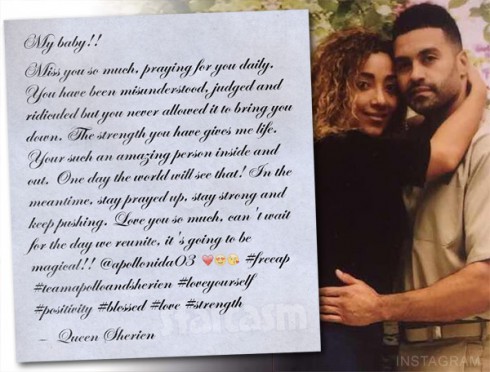 My baby!!
Miss you so much, praying for you daily.
You have been misunderstood, judged and
ridiculed but you never allowed it to bring you
down. The strength you have gives me life.
Your such an amazing person inside and
out. One day the world will see that! In the
meantime, stay prayed up, stay strong and
keep pushing. Love you so much, can't wait
for the day we reunite, it's going to be
magical!! @apollonida03 ❤️😍😘 #freeap
#teamapolloandsherien #loveyourself
#positivity #blessed #love #strength
- Queen Sherien
INSTAGRAM